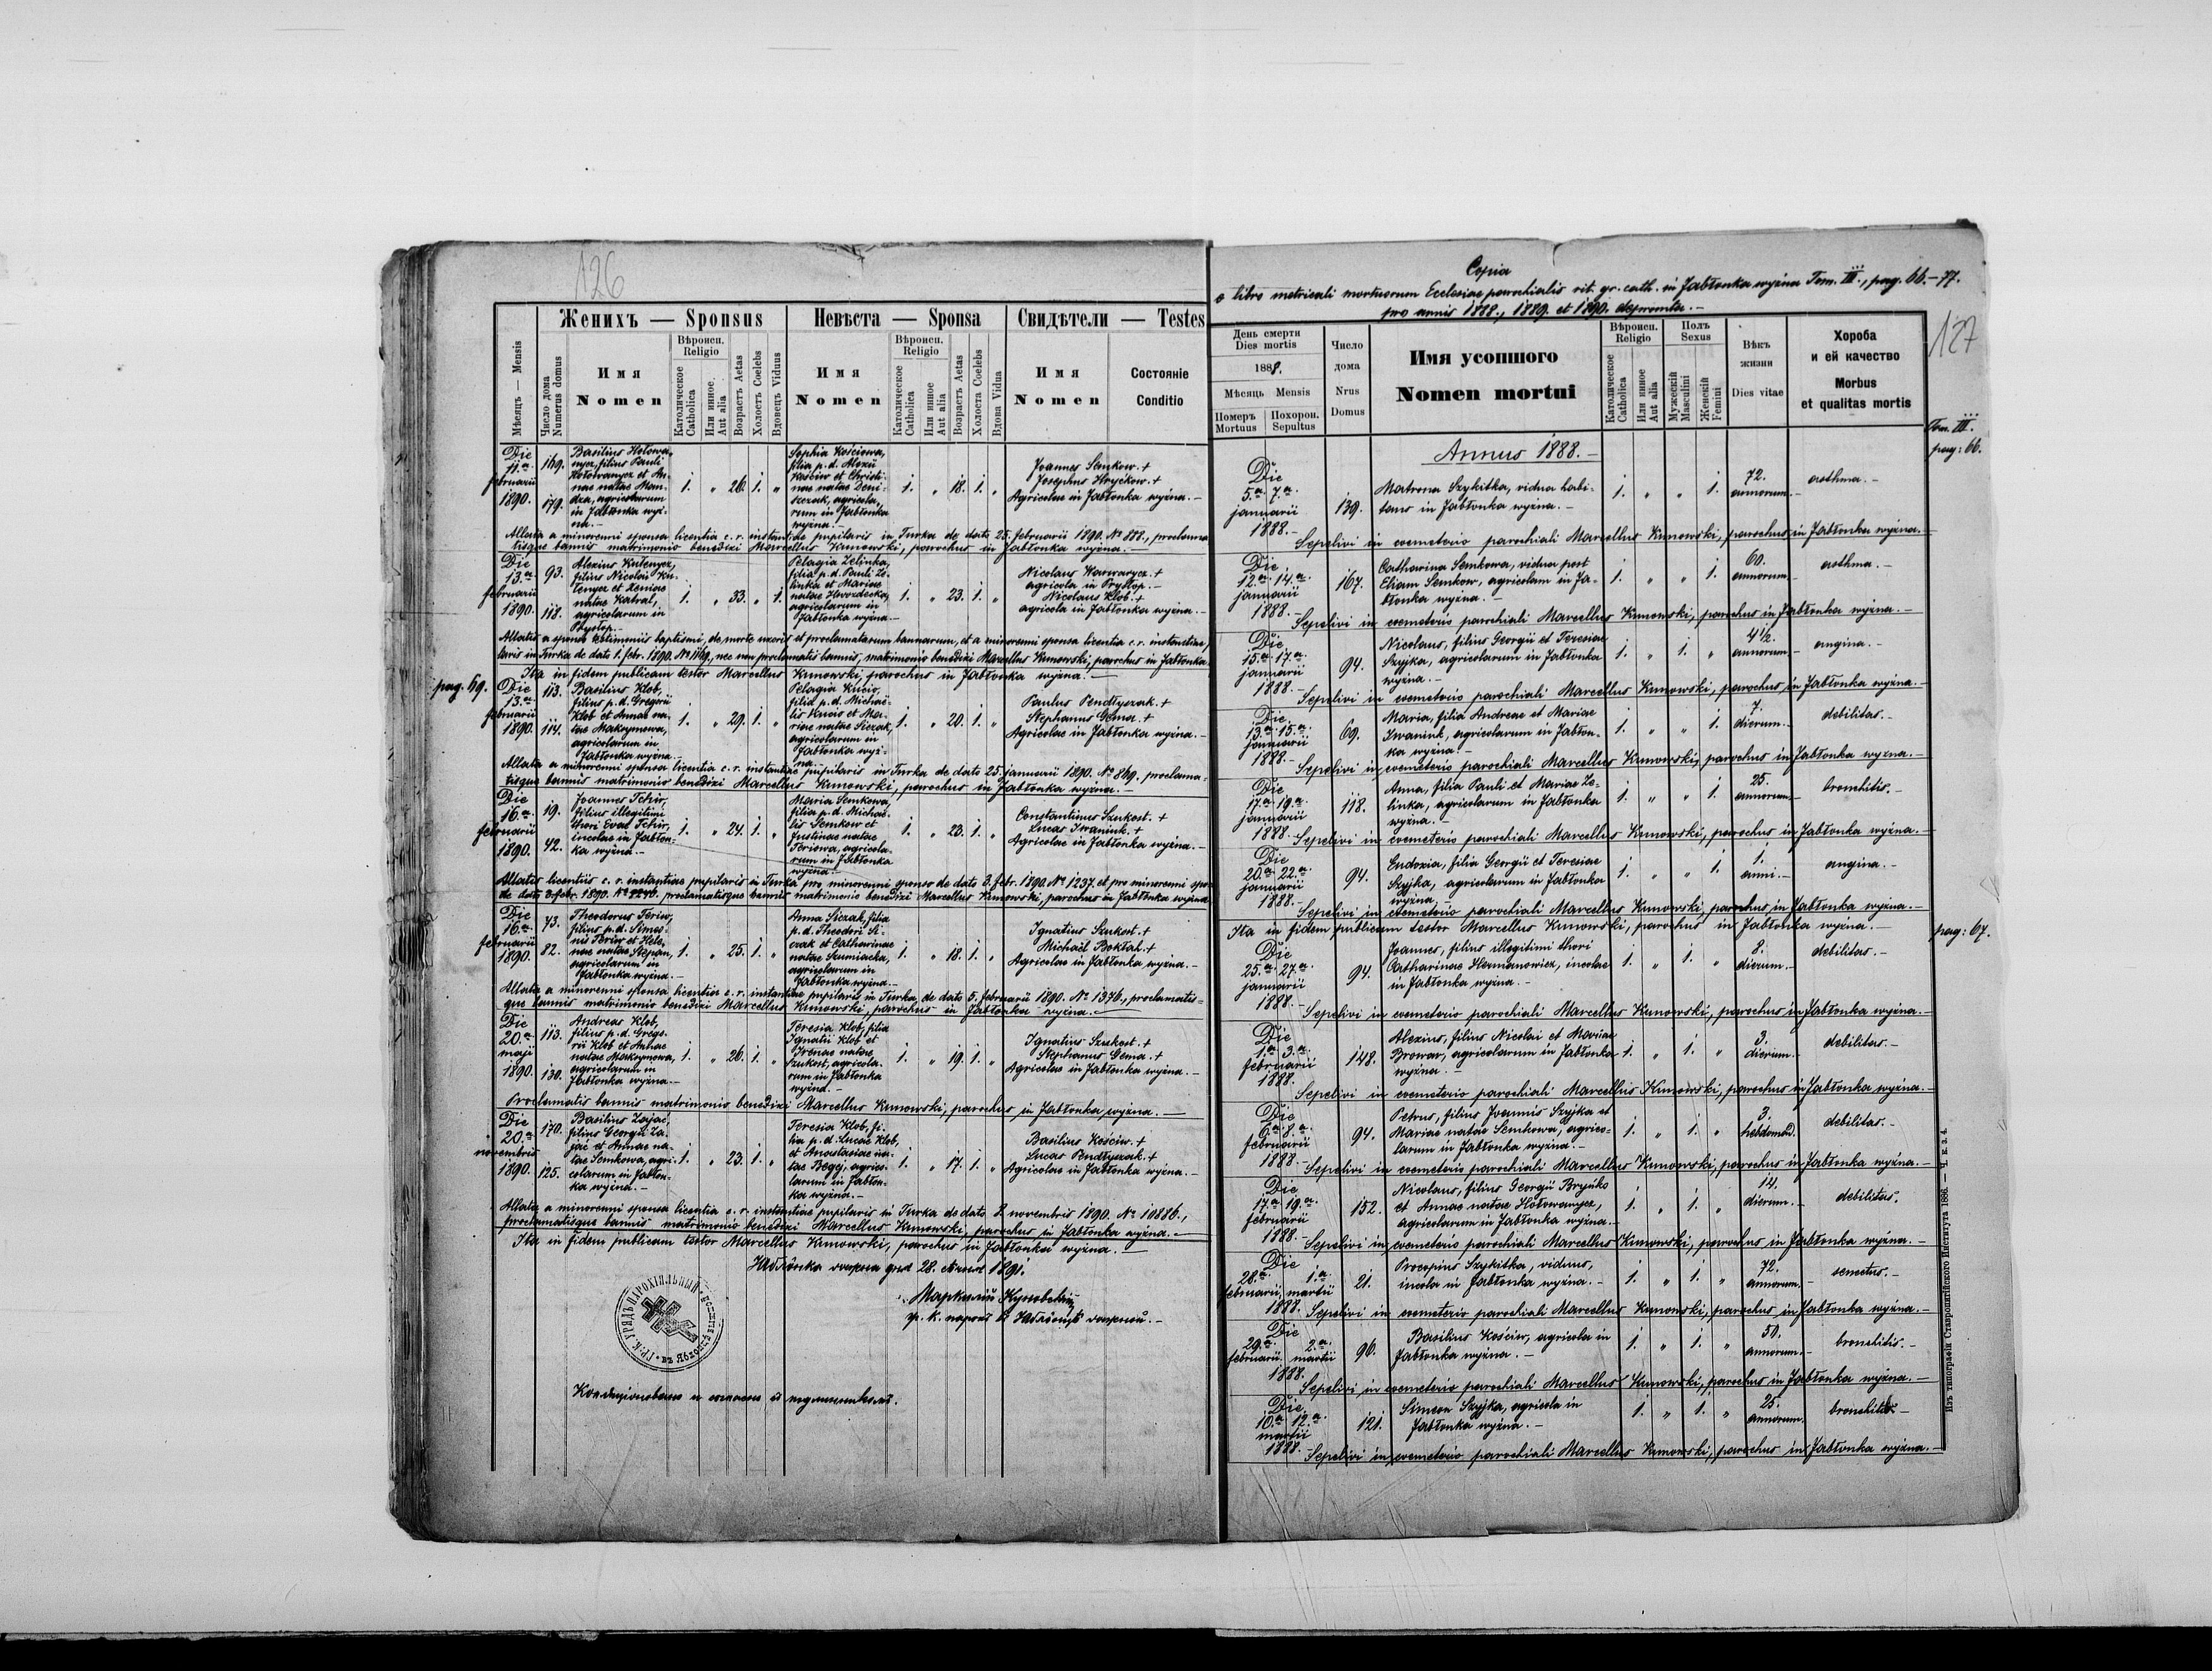 126
Женихъ — Sponsus
Невѣста — Sponsa
Свидѣтели — Testes
Мѣсяцъ — Mensis
Число дома
Numerus domus
Имя
Nomen
Вѣроисп.
Religio
Католическое
Catholica
Или инное
Aut alia
Возрастъ Aetas
Холостъ Coelebs
Вдовецъ Viduus
Имя
Nomen
Вѣроисп.
Religio
Католическое
Catholica
Или инное
Aut alia
Возрастъ Aetas
Холоста Coelebs
Вдова Vidua
Имя
Nomen
Состояніе
Conditio
Die 11.a februarii 1890.
169.
179.
Basilius Hołowa-
nycz, filius Pauli
Hołowanycz et An-
nae natae Man-
dza, agricolarum
in Jabłonka wyż-
na.—
1. „ 26. 1. „
Sophia Kościowa,
filia p. d. Alexii
Kościw et Christi-
nae natae Deni-
szczak, agricola-
rum in Jabłonka
wyżna.—
1. „ 18. 1. „
Joannes Semkow. +
Josephus Hryckow. +
Agricolae in Jabłonka wyżna.—
Allata a minorenni sponsa licentia c. r. instantiae pupilaris in Turka de dato 25. februarii 1890. No 878., proclama-
tisque bannis matrimonio benedixi Marcellus Kunowski, parochus in Jabłonka wyżna.—
Die 13.a februarii 1890.
93.
118.
Alexius Kutenycz,
filius Nicolai Ku-
tenycz et Xeniae
natae Katral,
agricolarum in
Prysłop.—
1. „ 33. „ 1.
Pelagia Zelinka,
filia p. d. Pauli Ze-
linka et Mariae
natae Hwozdecka,
agricolarum in
Jabłonka wyżna.—
1. „ 23. 1. „
Nicolaus Warwarycz. +
agricola in Prysłop.—
Nicolaus Klob. +
agricola in Jabłonka wyżna.—
Allatis a sponso testimoniis baptismi, de morte uxoris et proclamatarum bannarum, et a minorenni sponsa licentia c. r. instantiae
laris in Turka de dato 1. febr. 1890. No 1169., nec non proclamatis bannis, matrimonio benedixi Marcellus Kunowski, parochus in Jabłonka
Ita in fidem publicam testor Marcellus Kunowski, parochus in Jabłonka wyżna.—
pag. 69.
Die 13.a februarii 1890.
113.
114.
Basilius Klob,
filius p. d. Gregorii
Klob et Annae na-
tae Maksymowa,
agricolarum in
Jabłonka wyżna.—
1. „ 29. 1. „
Pelagia Kucio,
filia p. d. Michaë-
lis Kucio et Ma-
riae natae Siczak,
agricolarum in
Jabłonka wyż-
na.—
1. „ 20. 1. „
Paulus Pendłyszak. +
Stephanus Gema. +
Agricolae in Jabłonka wyżna.—
Allata a minorenni sponsa licentia c. r. instantiae pupilaris in Turka de dato 25. januarii 1890. No 869. proclama-
tisque bannis matrimonio benedixi Marcellus Kunowski, parochus in Jabłonka wyżna.—
Die 16.a februarii 1890.
19.
42.
Joannes Tchir,
filius illegitimi
thori Evae Tchir,
incolae in Jabłon-
ka wyżna.—
1. „ 24. 1. „
Maria Semkowa,
filia p. d. Michaë-
lis Semkow et
Justinae natae
Feriowa, agricola-
rum in Jabłonka
wyżna.—
1. „ 23. 1. „
Constantinus Szukost. +
Lucas Iwaniuk. +
Agricolae in Jabłonka wyżna.—
Allatis licentiis c. r. instantiae pupilaris in Turka pro minorenni sponso de dato 3. febr. 1890. No 1237. et pro minorenni spo-
de dato 3. febr. 1890. proclamatisque bannis matrimonio benedixi Marcellus Kunowski, parochus in Jabłonka wyżna
Die 16.a februarii 1890.
73.
82.
Theodorus Feriw,
filius p. d. Simeo-
nis Feriw et Hele-
nae natae Stepan,
agricolarum in
Jabłonka wyżna.—
1. „ 25. 1. „
Anna Siczak, filia
p. d. Theodori Si-
czak et Catharinae
natae Szumiacka,
agricolarum in
Jabłonka wyżna.—
1. „ 18. 1. „
Ignatius Szukost. +
Michaël Bokłah. +
Agricolae in Jabłonka wyżna.—
Allata a minorenni sponsa licentia c. r. instantiae pupilaris in Turka, de dato 5. februarii 1890. No 1376., proclamatis-
que bannis matrimonio benedixi Marcellus Kunowski, parochus in Jabłonka wyżna.—
Die 20.a maji 1890.
113.
130.
Andreas Klob,
filius p. d. Grego-
rii Klob et Annae
natae Maksymowa,
agricolarum in
Jabłonka wyżna.—
1. „ 26. 1. „
Teresia Klob, filia
Ignatii Klob et
Irenae natae
Szukost, agricola-
rum in Jabłonka
wyżna.—
1. „ 19. 1. „
Ignatius Szukost. +
Stephanus Gema. +
Agricolae in Jabłonka wyżna.—
Proclamatis bannis matrimonio benedixi Marcellus Kunowski, parochus in Jabłonka wyżna.—
Die 20.a novembris 1890.
170.
125.
Basilius Zajac,
filius Georgii Za-
jac et Annae na-
tae Semkowa, agri-
colarum in Jabłon-
ka wyżna.—
1. „ 23. 1. „
Teresia Klob, fi-
lia p. d. Lucae Klob,
et Anastasiae na-
tae Begej, agrico-
larum in Jabłon-
ka wyżna.—
1. „ 17. 1. „
Basilius Kościw. +
Lucas Pendłyszak. +
Agricolae in Jabłonka wyżna.—
Allata a minorenni sponsa licentia c. r. instantiae pupilaris in Turka de dato 2. novembris 1890. No 10886.,
proclamatisque bannis matrimonio benedixi Marcellus Kunowski, parochus in Jabłonka wyżna.—
Ita in fidem publicam testor Marcellus Kunowski, parochus in Jabłonka wyżna.—
28. 1891.
127
Copia
e libro metricali mortuorum Ecclesiae parochialis rit. gr. cath. in Jabłonka wyżna Tom. III., pag. 66.–77.
pro annis 1888., 1889. et 1890. depromta.—
День смерти
Dies mortis
1888.
Мѣсяць Mensis
Померъ
Mortuus
Похорон.
Sepultus
Число
дома
Nrus
Domus
Имя усопшого
Nomen mortui
Вѣроисп.
Religio
Католическое
Catholica
Или инное
Aut alia
Полъ
Sexus
Мужескій
Masculini
Женскій
Femini
Вѣкъ
жизни
Dies vitae
Хороба
и ей качество
Morbus
et qualitas mortis
Tom. III.
pag: 66.
Annus 1888.—
Die 5.a 7.a januarii 1888.—
139.
Matrona Szykitka, vidua habi-
tans in Jabłonka wyżna.—
1. „ „ 1.
72. annorum.—
asthma.—
Sepelivi in coemeterio parochiali Marcellus Kunowski, parochus in Jabłonka wyżna.—
Die 12.a 14.a januarii 1888.—
167.
Catharina Semkowa, vidua post
Eliam Semkow, agricolam in Ja-
błonka wyżna.—
1. „ „ 1.
60. annorum.—
asthma.—
Sepelivi in coemeterio parochiali Marcellus Kunowski, parochus in Jabłonka wyżna.—
Die 15.a 17.a januarii 1888.—
94.
Nicolaus, filius Georgii et Teresiae
Szyjka, agricolarum in Jabłonka
wyżna.—
1. „ 1. „
4 1/2. annorum.—
angina.—
Sepelivi in coemeterio parochiali Marcellus Kunowski, parochus in Jabłonka wyżna.—
Die 13.a 15.a januarii 1888.—
69.
Maria, filia Andreae et Mariae
Iwaniuk, agricolarum in Jabłon-
ka wyżna.—
1. „ „ 1.
7. dierum.—
debilitas.—
Sepelivi in coemeterio parochiali Marcellus Kunowski, parochus in Jabłonka wyżna.—
Die 17.a 19.a januarii 1888.—
118.
Anna, filia Pauli et Mariae Ze-
linka, agricolarum in Jabłonka
wyżna.—
1. „ „ 1.
25. annorum.—
bronchitis.—
Sepelivi in coemeterio parochiali Marcellus Kunowski, parochus in Jabłonka wyżna.—
Die 20.a 22.a januarii 1888.—
94.
Eudoxia, filia Georgii et Teresiae
Szyjka, agricolarum in Jabłonka
wyżna.—
1. „ „ 1.
1. anni.—
angina.—
Sepelivi in coemeterio parochiali Marcellus Kunowski, parochus in Jabłonka wyżna.—
Ita in fidem publicam testor Marcellus Kunowski, parochus in Jabłonka wyżna.—
pag: 67.
Die 25.a 27.a januarii 1888.—
94.
Joannes, filius illegitimi thori
Catharinae Hermanowicz, incolae
in Jabłonka wyżna.—
1. „ 1. „
8. dierum.—
debilitas.—
Sepelivi in coemeterio parochiali Marcellus Kunowski, parochus in Jabłonka wyżna.—
Die 1.a 3.a februarii 1888.
148.
Alexius, filius Nicolai et Mariae
Browar, agricolarum in Jabłonka
wyżna.—
1. „ 1. „
3. dierum.—
debilitas.—
Sepelivi in coemeterio parochiali Marcellus Kunowski, parochus in Jabłonka wyżna.—
Die 6.a 8.a februarii 1888.—
94.
Petrus, filius Joannis Szyjka et
Mariae natae Semkowa, agrico-
larum in Jabłonka wyżna.—
1. „ 1. „
3. hebdomad.
debilitas.—
Sepelivi in coemeterio parochiali Marcellus Kunowski, parochus in Jabłonka wyżna.—
Die 17.a 19.a februarii 1888.—
152.
Nicolaus, filius Georgii Bryńko
et Annae natae Hołowanycz,
agricolarum in Jabłonka wyżna.—
1. „ 1. „
14. dierum.—
debilitas.
Sepelivi in coemeterio parochiali Marcellus Kunowski, parochus in Jabłonka wyżna.—
Die 28.a februarii, 1.a martii 1888.
21.
Procopius Szykitka, viduus,
incola in Jabłonka wyżna.—
1. „ 1. „
72. annorum.—
senectus.—
Sepelivi in coemeterio parochiali Marcellus Kunowski, parochus in Jabłonka wyżna.—
Die 29.a februarii. 2.a martii 1888.
96.
Basilius Kościw, agricola in
Jabłonka wyżna.—
1. „ 1. „
50. annorum.—
bronchitis.—
Sepelivi in coemeterio parochiali Marcellus Kunowski, parochus in Jabłonka wyżna.—
Die 10.a 12.a martii 1888.—
121.
Simeon Szyjka, agricola in
Jabłonka wyżna.—
1. „ 1. „
25. annorum.
bronchitis.—
Sepelivi in coemeterio parochiali Marcellus Kunowski, parochus in Jabłonka wyżna.—
Изъ типографіи Ставропигійского Института 1886. — Ч. к. з. 4.